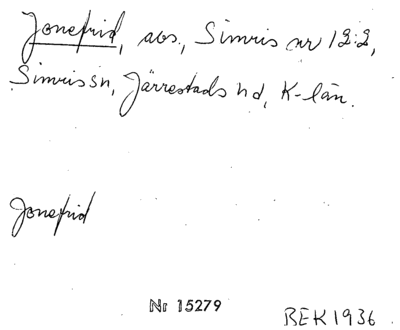 Jonefrid, avs., Simris nr 12:2,
Simris sn, Järrestads hd, K-län.
Jonefrid
Nr 15279
BEK 1936